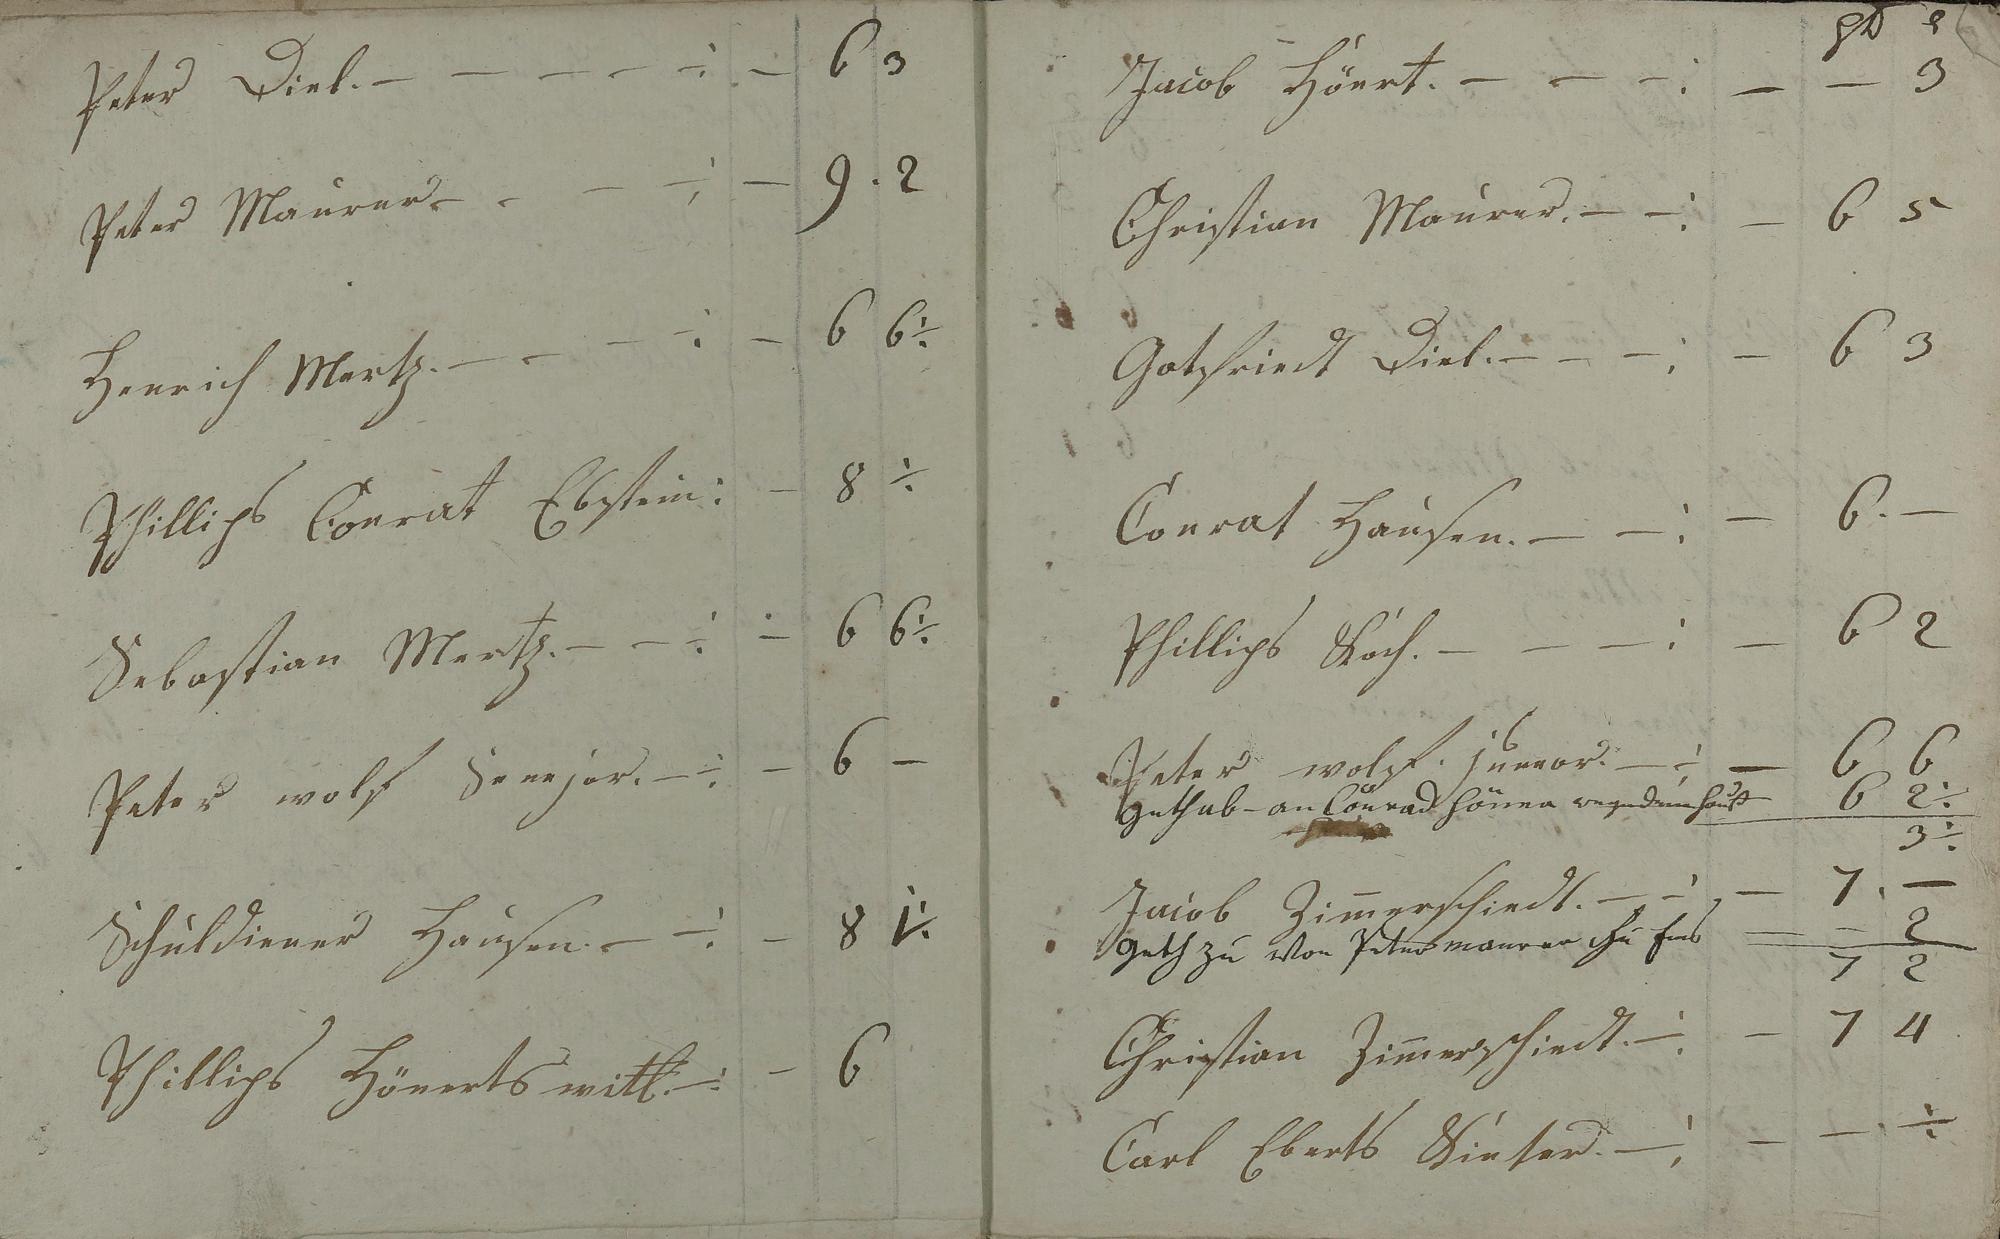 Peter Diel. — — — — — ÷ — 6 3
Peter Maurer — — — ÷ — 9 . 2
Henrich Mertz. — — — ÷ — 6 6 ÷
Phillips Conrat Ebstein : — 8 ÷
Sebastian Mertz. — — ÷ — 6 6 ÷
Peter wolf Senejor. — ÷ — 6 —
Schuldiener Hausen. — ÷ — 8 1 ÷
Phillips Hönerts witb. ÷ — 6
Jacob Hönrt. — — — : — — 3
Christian Maurer. — — : — 6 5
Gotfriedt Diel. — — — : — 6 3
Conrat Hausen. — — : — 6 . —
Phillips Koch. — — — : — 6 2
Peter wolf. junior. — : — 6 6
geth ab — an Conrad Höner 6 2 ÷
3 ÷
Jacob Zimerschiedt. — : — 7 . —
geth zu von Peter maurer — 2
7 2
Christian Zimerschiedt. ÷ — 7 4
Carl Eberts Kinter. — : — — . ÷